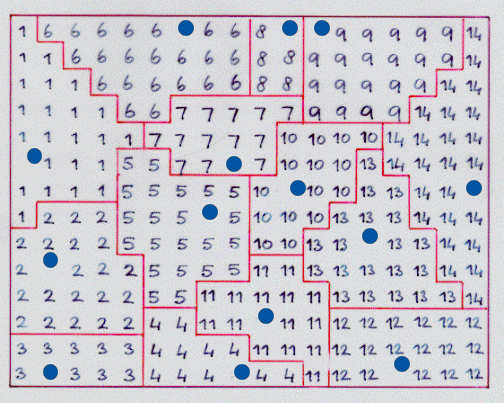 1 6 6 6 6 6 6 6 8 9 9 9 9 9 14
1 1 6 6 6 6 6 6 6 8 8 9 9 9 9 9 9 14
1 1 1 6 6 6 6 6 6 8 8 9 9 9 9 9 14 14
1 1 1 1 6 6 7 7 7 7 7 9 9 9 9 14 14 14
1 1 1 1 1 7 7 7 7 7 10 10 10 10 14 14 14 14
1 1 1 5 5 7 7 7 10 10 10 13 14 14 14 14
1 1 1 1 5 5 5 5 5 10 10 10 13 13 14 14
1 2 2 2 5 5 5 5 10 10 10 13 13 13 14 14 14
2 2 2 2 5 5 5 5 5 10 10 13 13 13 13 14 14
2 2 2 2 5 5 5 5 11 11 13 13 13 13 13 14 14
2 2 2 2 2 5 5 11 11 11 11 11 13 13 13 13 13 14
2 2 2 2 2 4 4 11 11 11 11 12 12 12 12 12 12
3 3 3 3 3 4 4 4 4 11 11 11 12 12 12 12 12 12
3 3 3 3 4 4 4 4 4 11 12 12 12 12 12